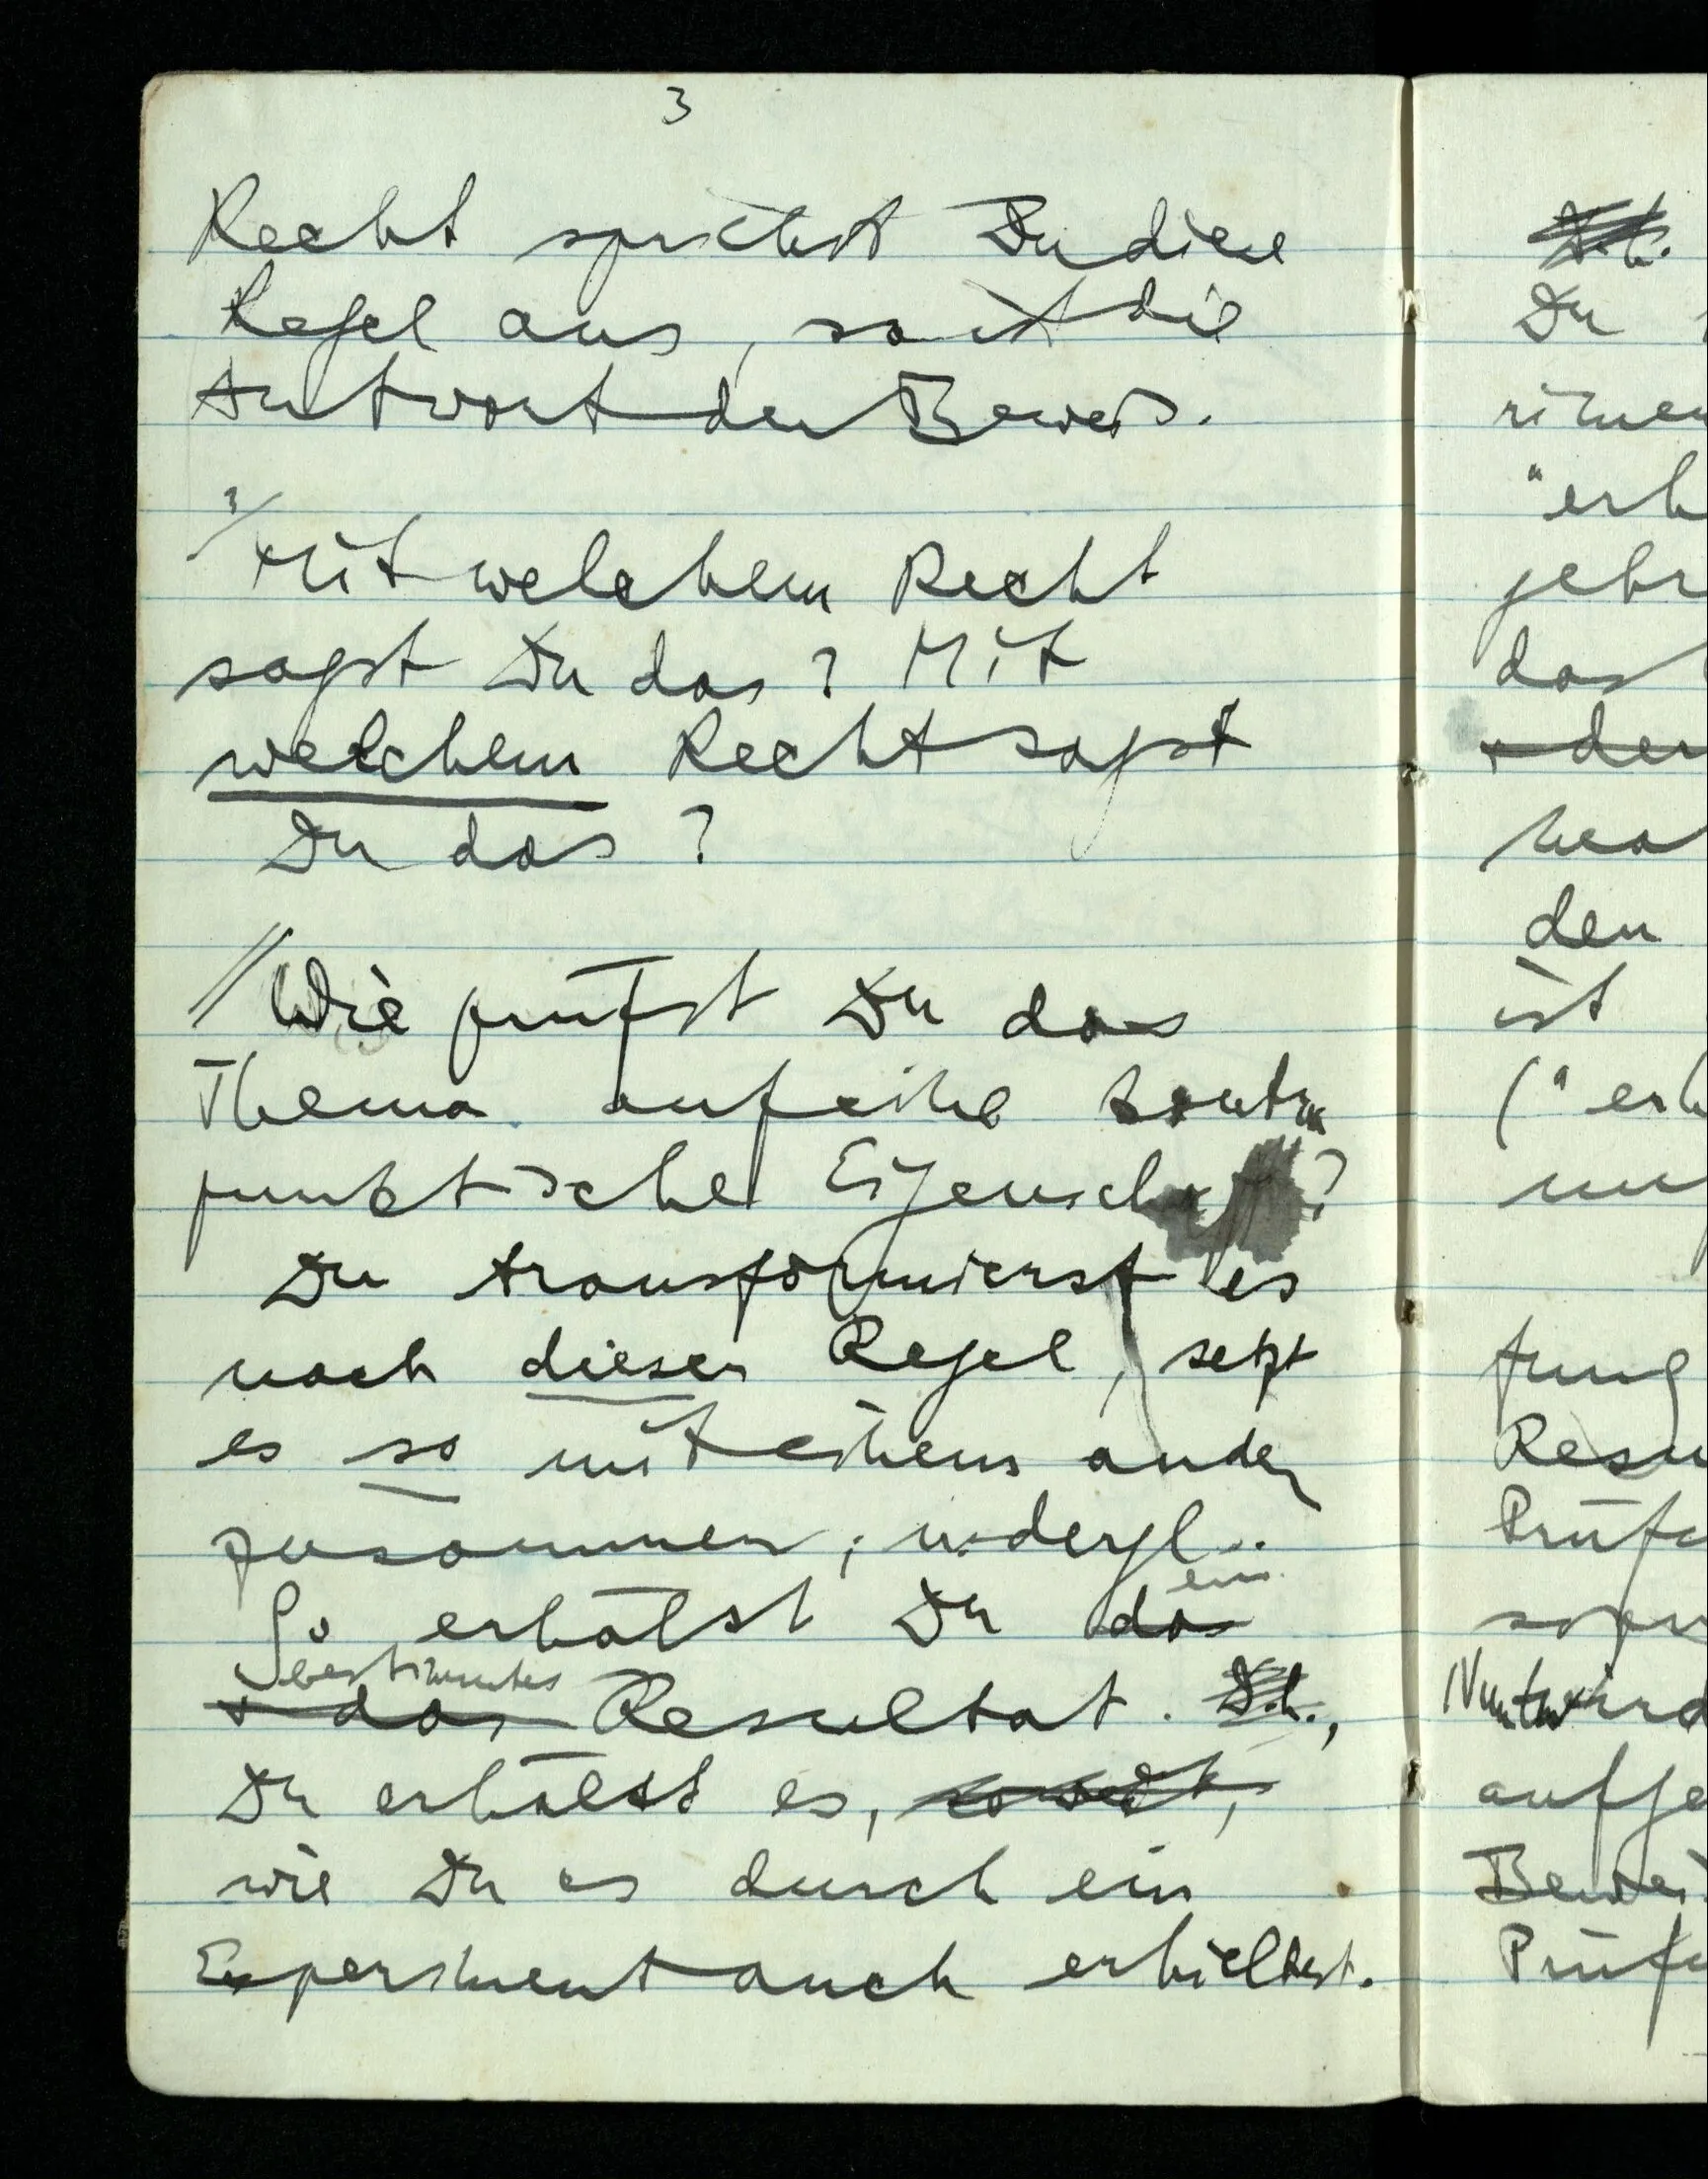 3
Recht sprichst Du diese
Regel aus, so ist die
Antwort der Beweis.
?/ Mit welchem Recht
sagst Du das? Mit
welchem Recht sagst
Du das?
// Wie prüfst Du das
Thema auf eine kontra
punktische Eigenschaft?
Du transformierst es
nach dieser Regel, setzt
es so mit einem andern
zusammen; u. dergl..
ein
So erhältst Du das
bestimmtes
das Resultat. D.h.,
Du erhältst es,
wie Du es durch ein
Experiment auch erhieltest.
D.h.
Du
"erh
das
den
ist
("erh
Resu
Prüfu
aufge
Bewei
Prüfu